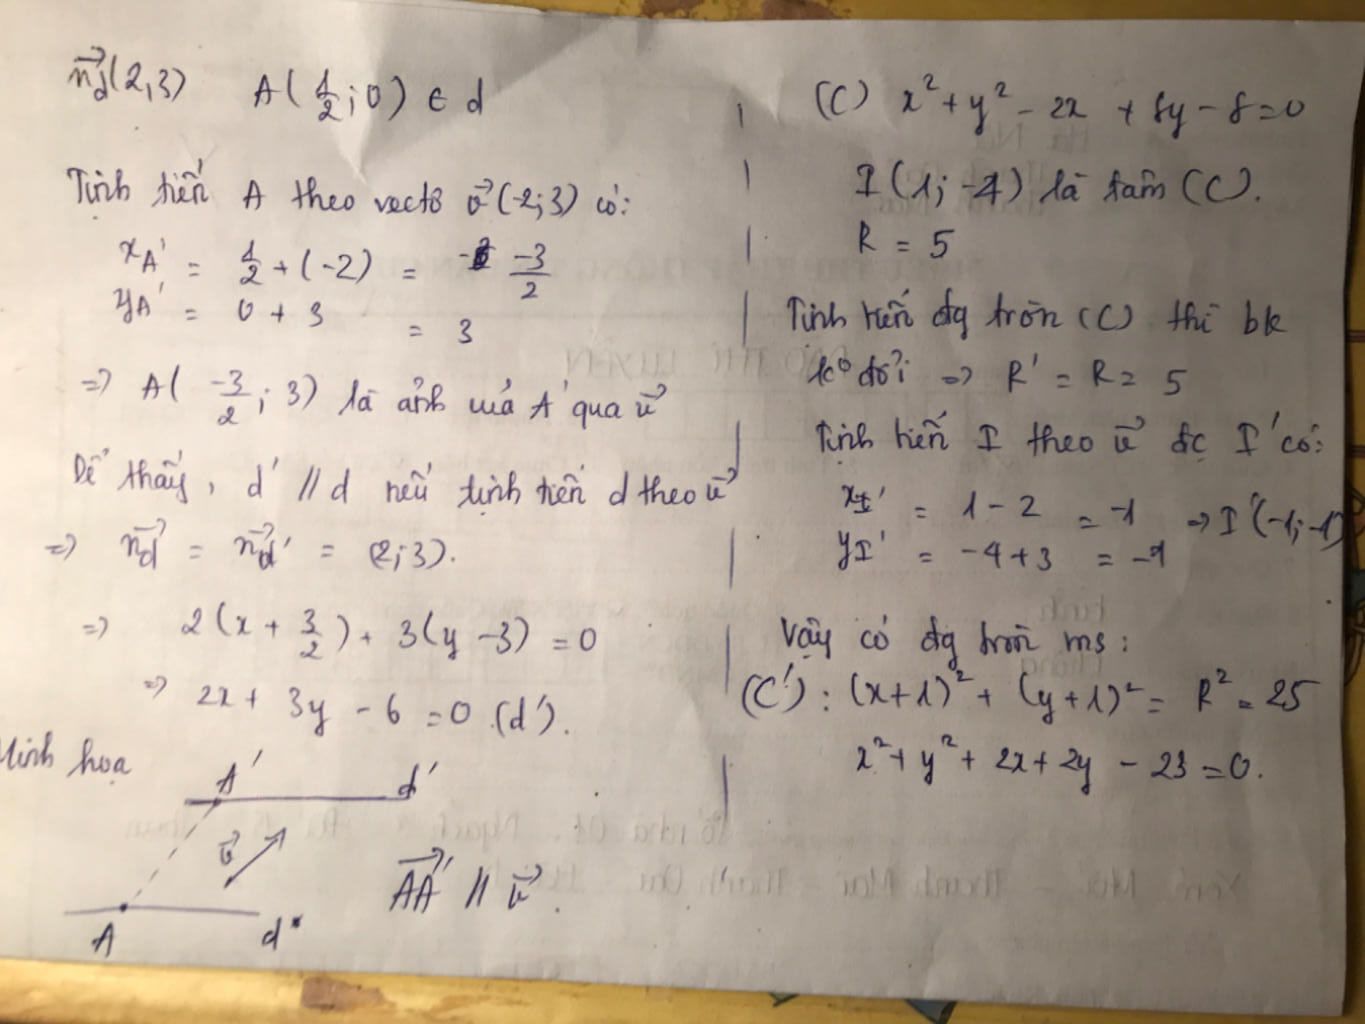 n⃗d(2,3) A(1/2; 0) ∈ d
Tịnh tiến A theo vectơ v⃗(-2; 3) có:
xA' = 1/2 + (-2) = -3/2
yA' = 0 + 3 = 3
=> A(-3/2; 3) là ảnh của A' qua v⃗
Dễ thấy, d' // d nếu tịnh tiến d theo v⃗
=> n⃗d = n⃗d' = (2; 3).
=> 2(x + 3/2) + 3(y - 3) = 0
=> 2x + 3y - 6 = 0 (d').
Minh hoạ
A' d'
v⃗
A d
AA'⃗ // v⃗.
(C) x² + y² - 2x + 8y - 8 = 0
I(1; -4) là tâm (C).
R = 5
Tịnh tiến đg tròn (C) thì bk
ko đổi => R' = R = 5
Tịnh tiến I theo v⃗ đc I' có:
xI' = 1 - 2 = -1 => I'(-1; -1)
yI' = -4 + 3 = -1
Vậy có đg tròn ms:
(C'): (x+1)² + (y+1)² = R² = 25
x² + y² + 2x + 2y - 23 = 0.